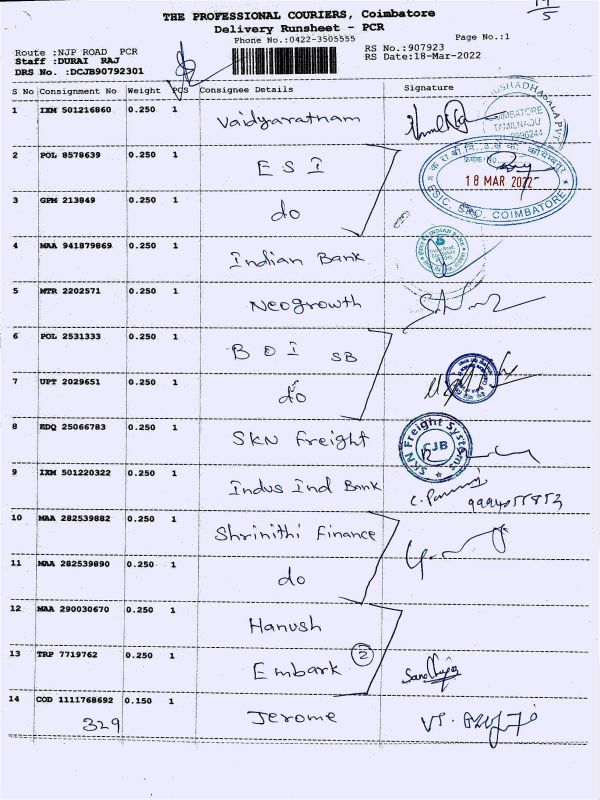 THE PROFESSIONAL COURIERS, Coimbatore
Delivery Runsheet - PCR
Phone No.:0422-3505555
Page No.:1
Route :NJP ROAD PCR
Staff :DURAI RAJ
DRS No. :DCJB90792301
RS No.:907923
RS Date:18-Mar-2022
S No Consignment No Weight PCS Consignee Details Signature
1 IXM 501216860 0.250 1 Vaidyaratnam
COIMBATORE
TAMILNADU
2 POL 8578639 0.250 1 E S I
18 MAR 2022
ESIC, SRO, COIMBATORE
3 GPM 213849 0.250 1 do
4 MAA 941879869 0.250 1 Indian Bank
INDIAN BANK
5 MTR 2202571 0.250 1 Neogrowth
6 POL 2531333 0.250 1 B O I SB
7 UPT 2029651 0.250 1 do
8 EDQ 25066783 0.250 1 SKN Freight
SKN Freight Systems
CJB
9 IXM 501220322 0.250 1 Indus Ind Bank
10 MAA 282539882 0.250 1 Shrinithi Finance
11 MAA 282539890 0.250 1 do
12 MAA 290030670 0.250 1 Hanush
13 TRP 7719762 0.250 1 Embark 2
14 COD 1111768692 0.150 1 Jerome
329